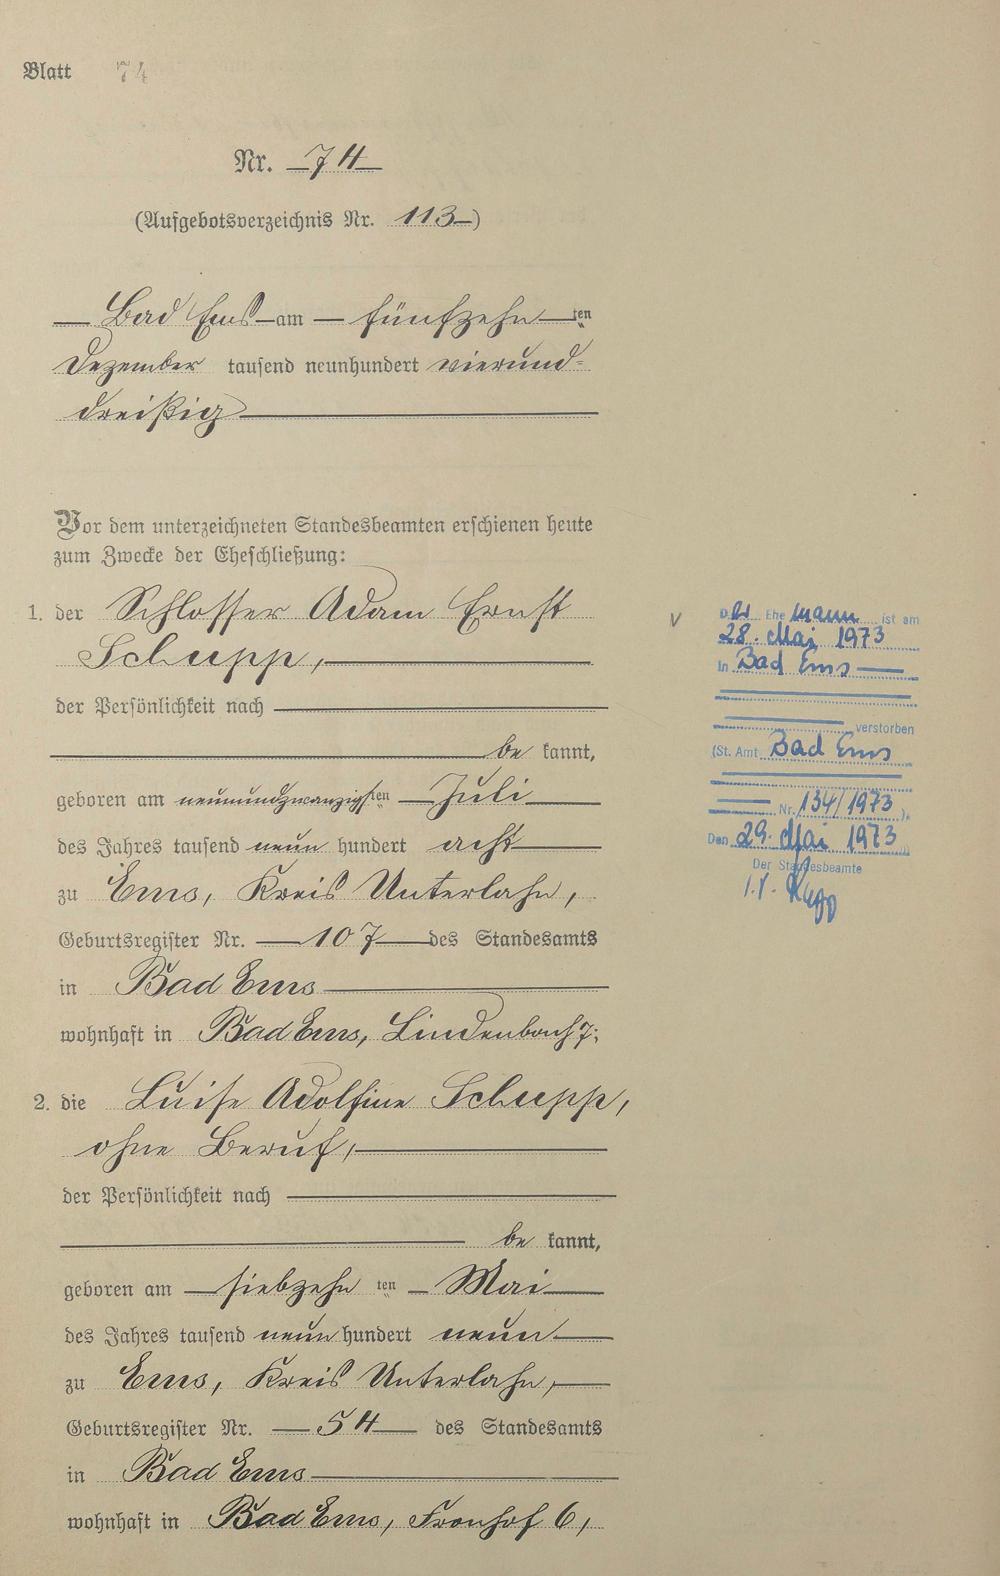 Blatt 74
Nr. 74
(Aufgebotsverzeichnis Nr. 113)
Bad Ems am fünfzehn ten
Dezember tausend neunhundert vierund-
dreißig
Vor dem unterzeichneten Standesbeamten erschienen heute
zum Zwecke der Eheschließung:
1. der Schlosser Adam Ernst
Schupp,
der Persönlichkeit nach
be kannt,
geboren am neunundzwanzigsten Juli
des Jahres tausend neun hundert acht
zu Ems, Kreis Unterlahn,
Geburtsregister Nr. 107 des Standesamts
in Bad Ems
wohnhaft in Bad Ems, Lindenbach 7;
2. die Luise Adolfine Schupp,
ohne Beruf,
der Persönlichkeit nach
be kannt,
geboren am siebzehn ten Mai
des Jahres tausend neun hundert neun
zu Ems, Kreis Unterlahn,
Geburtsregister Nr. 54 des Standesamts
in Bad Ems
wohnhaft in Bad Ems, Fronhof 6,
Der Ehemann ist am
28. Mai 1973
in Bad Ems
verstorben
(St. Amt Bad Ems
Nr. 134/1973).
Den 29. Mai 1973
Der Standesbeamte